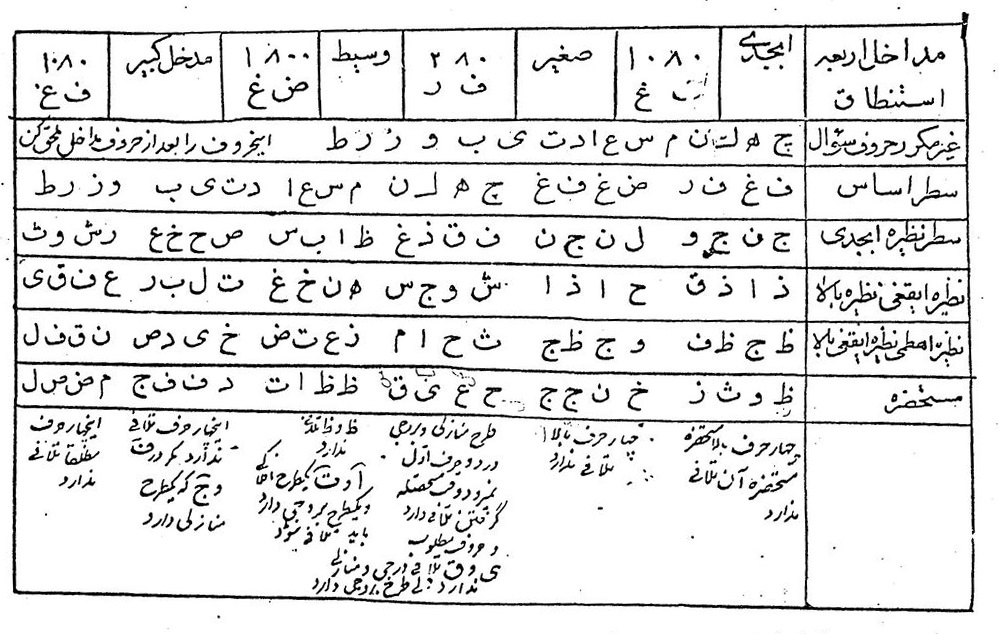 مداخل اربعه استنطاق
ابجدی ۱۰۸۰ غ صغیر ۲۸۰ ف ر وسیط ۱۸۰۰ ض غ مدخل کبیر ۱۰۸۰ ف غ
غیر مکرر حروف سؤال چ ه ل ن م س ع ا د ت ی ب و ز ر ط اینحروف را بعد از حروف مداخل ملحق کن
سطر اساس ف غ ف ر ض غ ف غ چ ه ل ن م س ع ا د ت ی ب و ز ر ط
سطر نظیره ابجدی ج ن ج و ل ن ج ن ف ق ذ غ ظ ا ب س ص ح خ ع ر ش و ث
نظیره ایقغی نظیره بالا ذ ا ذ ق ح ا ذ ا ش و ج س ه ن خ غ ت ل ب ر ع ف ق ی
نظیره اهطمی نظیره ایقغی بالا ظ ج ظ ف و ج ظ ج ث ح ا م ذ ع ت ض خ ی د ص ن ق ف ل
مستحضره ظ و ث ز خ ن ج ج ح غ ی ق ظ ظ ا ت د ف ف ج م ض ص ل
چهار حرف بالا مستحضره
مستحضره آن تلاقی
ندارد
چهار حرف بالا
تلاقی ندارد
طرح منازلی و بروجی
در دو حرف اول
گرفتن تلاقی دارد
و حروف مطلوب
ی و ق تلاقی درجی و منازلی
ندارد ولی طرح بروجی دارد
ظ و ظ تلاقی
ندارد
و یکطرح بروجی دارد
باید تلاقی شود
اینچهار حرف تلاقی
ندارد مگر حرف
و ج که یکطرح
منازلی دارد
اینچهار حرف
مطلقا تلاقی
ندارد